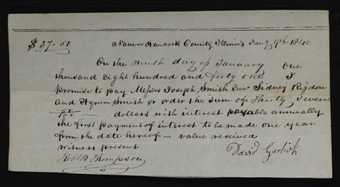 $ 37-00 Nauvoo Hancock County Illinois Jany 9th 1840
On the ninth day of January One
thousand eight hundred and forty one I
promise to pay Messrs Joseph Smith Junr Sidney Rigdon
and Hyrum Smith or order the sum of Thirty Seven
dollars with interest payable annually
the first payment of interest to be made one year
from the date hereof for value received
Witness present
R B Thompson David